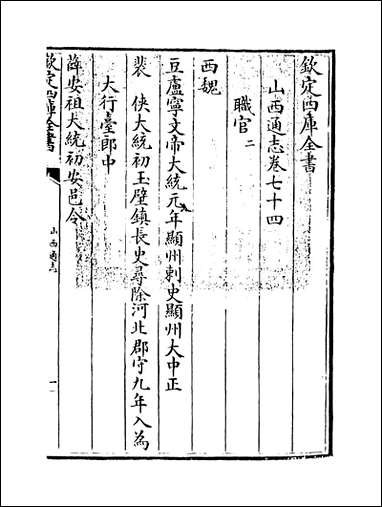 欽定四庫全書
山西通志卷七十四
職官二
西魏
豆盧寧文帝大統元年顯州刺史顯州大中正
裴俠大統初玉壁鎮長史尋除河北郡守九年入為
大行臺郎中
薛安祖大統初安邑令
欽定四庫全書
山西通志
一